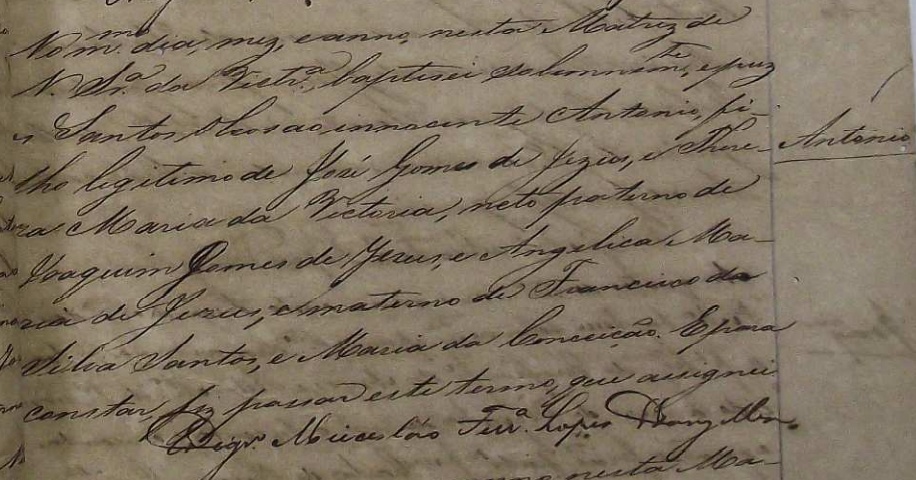 No m.mo dia, mez, e anno, nesta Matriz de
N. Sr.a da Victr.a baptisei solemnem.te, e puz
os Santos Oleos ao innocente Antonio, fi-
lho legitimo de José Gomes de Jezus, e There-
Antonio
za Maria da Victoria, neto paterno de
Joaquim Gomes de Jezus, e Angelica Ma-
ria de Jezus, e materno de Francisco da
Silva Santos, e Maria da Conceicão. E para
constar, fiz passar este termo, que assignei
Ferr.a Lopes
nesta Ma-